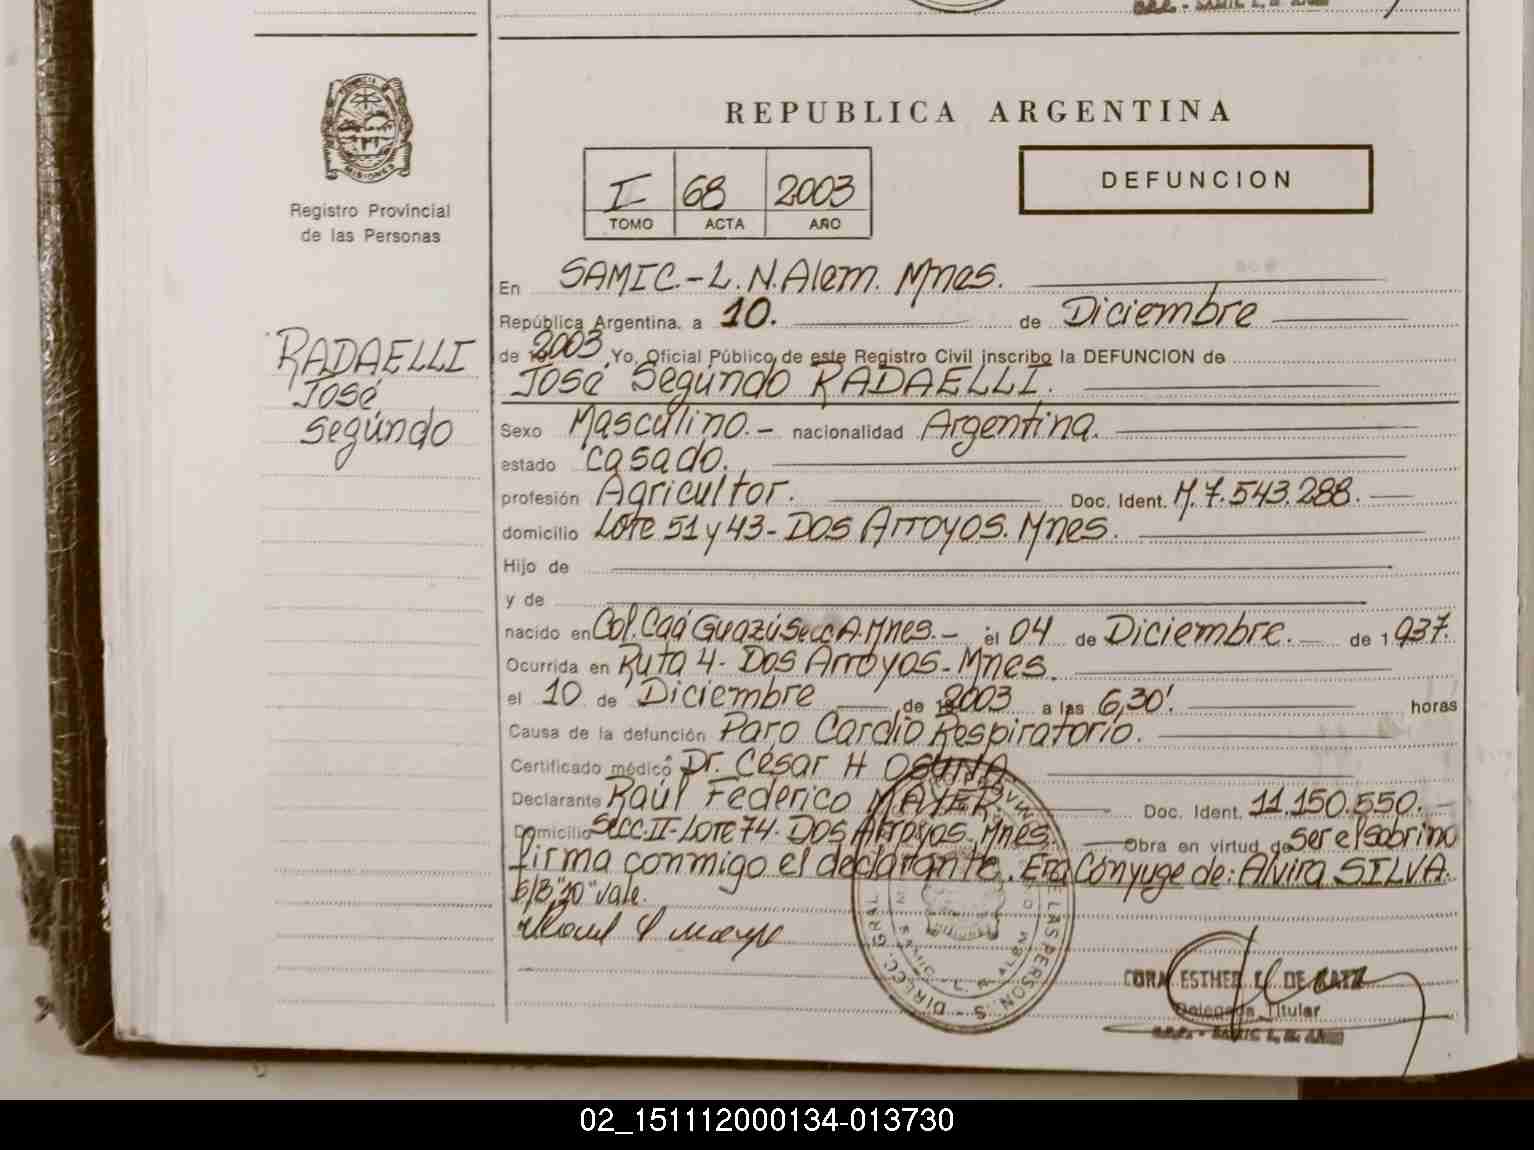 REPUBLICA ARGENTINA
MISIONES
Registro Provincial
de las Personas
I 68 2003
TOMO ACTA AÑO
DEFUNCION
En SAMIC.-L.N.Alem. Mnes.
República Argentina, a 10. de Diciembre
de 2003 Yo, Oficial Público de este Registro Civil inscribo la DEFUNCION de
José Segúndo RADAELLI.
RADAELLI
José
Segúndo
Sexo Masculino.- nacionalidad Argentina.
estado Casado.
profesión Agricultor. Doc. Ident. M.7.543.288.
domicilio Lote 51 y 43-Dos Arroyos. Mnes.
Hijo de
y de
nacido en Col.Caá Guazú Secc A.Mnes.- el 04 de Diciembre. de 1937.
Ocurrida en Ruta 4- Dos Arroyos-Mnes.
el 10 de Diciembre de 2003 a las 6,30'. horas
Causa de la defunción Paro Cardio Respiratorio.
Certificado médico Dr. César H OSUNA
Declarante Raúl Federico MAYER. Doc. Ident. 11.150.550.-
Domicilio Secc.II-Lote 74-Dos Arroyos-Mnes. Obra en virtud de ser el sobrino
firma conmigo el declarante. Era Cónyuge de: Alvira SILVA.
S/B "30" vale.
CORA ESTHER DE
Delegada Titular
SAMIC L. N. ALEM
02_151112000134-013730